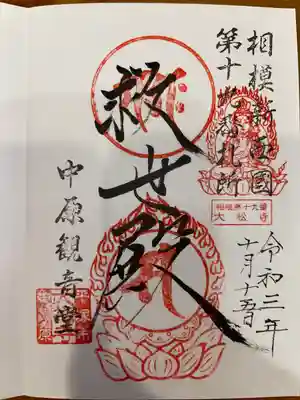 相模新西國
第十九番札所
相模第十九番
大松寺
令和三年
十月十五日
救世殿
中原観音堂